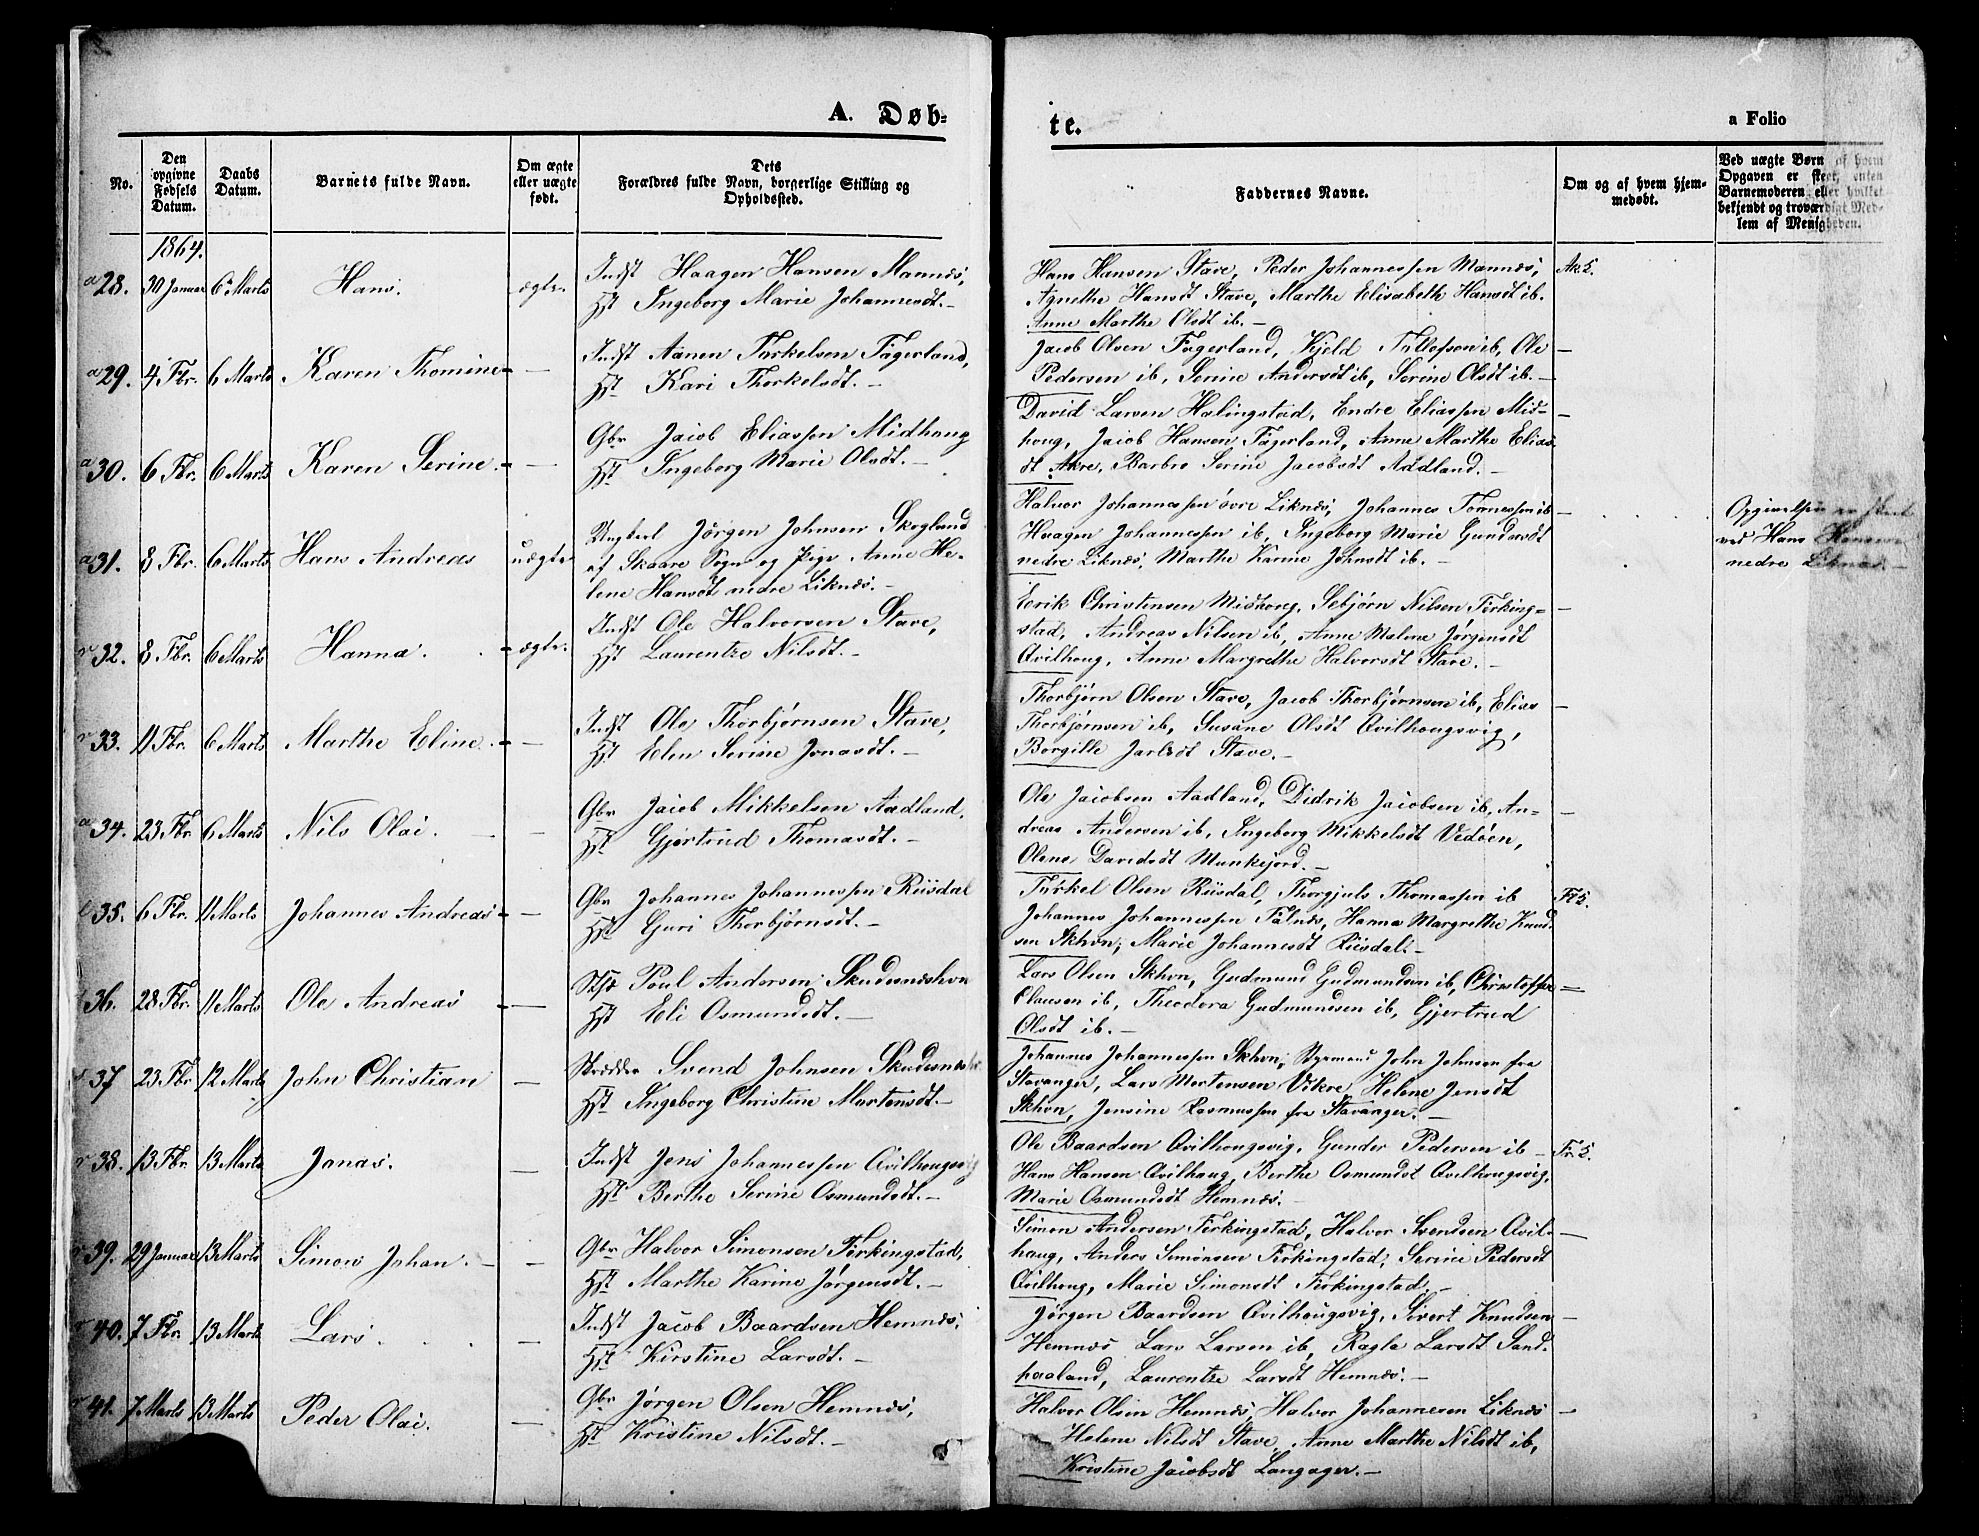 A. Døb-
te.
a Folio
No.
Den opgivne Fødsels Datum.
Daabs Datum.
Barnets fulde Navn.
Om ægte eller uægte født.
Dets Forældres fulde Navn, borgerlige Stilling og Opholdssted.
Faddernes Navne.
Om og af hvem hjemmedøbt.
Ved uægte Børn af hvem Opgaven er skeet, enten Barnemoderen eller hvilket bekjendt og troværdigt Medlem af Menigheden.
1864.
a 28. 30 Januar 6 Marts Hans. ægte.
Indst Haagen Hansen Mannes,
Hst Ingeborg Marie Johannesdt. -
Hans Hansen Stave, Peder Johannessen Mannes,
Agnethe Hansdt Stave, Marthe Elisabeth Hansdt ib.
Anne Marthe Olsdt ib. -
a 29. 4 Fbr. 6 Marts Karen Thomine -
Indst Aanen Torkelsen Fagerland,
Hst Kari Thorkelsdt. -
Jacob Olsen Fagerland, Kjeld Tollofsen ib, Ole
Pedersen ib, Serine Andersdt ib, Serine Olsdt ib. -
a 30. 6 Fbr. 6 Marts Karen Serine. -
Gbr Jacob Eliassen Midhoug
Hst Ingeborg Marie Olsdt. -
David Larsen Halingstad, Endre Eliassen Mid-
houg, Jacob Hansen Fagerland, Anne Marthe Elias
dt Akre, Barbro Serine Jacobsdt Aadland. -
a 31. 8 Fbr. 6 Marts Hans Andreas uægte
Ungkarl Jørgen Johnsen Skogland
af Skaare Sogn og Pige Anne He-
lene Hansdt nedre Liknes. -
Halvor Johannessen øvre Liknes, Johannes Tønnessen ib
Haagen Johannessen ib, Ingeborg Marie Gundersdt
nedre Liknes, Marthe Karine Johnsdt ib. -
Opgivelsen er skeet
ved Hans Hansen
nedre Liknes. -
32. 8 Fbr. 6 Marts Hanna. ægte.
Indst Ole Halvorsen Stave,
Hst Laurentze Nilsdt. -
Eerik Christensen Midhoug, Sebjørn Nilsen Ferking-
stad, Andreas Nilsen ib, Anne Malene Jørgensdt
Qvilhoug, Anne Margrethe Halvorsdt Stave. -
33. 11 Fbr. 6 Marts Marthe Eline. -
Indst Ole Thorbjørnsen Stave,
Hst Elen Serine Jonasdt. -
Thorbjørn Olsen Stave, Jacob Thorbjørnsen ib, Elias
Thorbjørnsen ib, Susane Olsdt Qvilhougsvig,
Borgille Jarlsdt Stave. -
a 34. 23 Fbr 6 Marts Nils Olai. -
Gbr Jacob Mikkelsen Aadland,
Hst Gjertrud Thomasdt. -
Ole Jacobsen Aadland, Didrik Jacobsen ib, An-
dreas Andersen ib, Ingeborg Mikkelsdt Vedøen,
Olene Davidsdt Munkejord. -
35. 6 Fbr. 11 Marts Johannes Andreas -
Gbr Johannes Johannessen Riisdal
Hst Guri Thorbjørnsdt. -
Torkel Olsen Riisdal, Thorgjuls Thomassen ib
Johannes Johannessen Falnes, Hanna Margrethe Knud-
sen Skhvn, Marie Johannesdt Riisdal. -
36. 28 Fbr. 11 Marts Ole Andreas -
Poul Andersen Skudesneshvn
Hst Eli Osmundsdt. -
Lars Olsen Skhvn, Gudmund Gudmundsen ib, Christoffer
Clausen ib, Theodora Gudmundsen ib, Gjertrud
Olsdt ib. -
37 23 Fbr 12 Marts John Christian -
Skrædder Svend Johnsen Skudesneshv
Hst Ingeborg Christine Mortensdt. -
Johannes Johannessen Skhvn, Styrmand John Johnsen fra
Stavanger, Lars Mortensen Vikre, Helene Jensdt
Skhvn, Jensine Rasmussen fra Stavanger. -
38. 13 Fbr. 13 Marts Jonas. -
Indst Jens Johannessen Qvilhougsvig
Hst Berthe Serine Osmundsdt. -
Ole Baardsen Qvilhougsvig, Gunder Pedersen ib -
Hans Hansen Qvilhoug, Berthe Osmundsdt Qvilhougsvig,
Marie Osmundsdt Hemnes. -
39. 29 Januar 13 Marts Simon Johan. -
Gbr Halvor Simonsen Ferkingstad,
Hst Marthe Karine Jørgensdt. -
Simon Andersen Ferkingstad, Halvor Svendsen Qvil-
houg, Anders Simonsen Ferkingstad, Serine Pedersdt
Qvilhoug, Marie Simonsdt Ferkingstad. -
40. 7 Fbr. 13 Marts Lars. -
Indst Jacob Baardsen Hemnes,
Hst Kirstine Larsdt. -
Jørgen Baardsen Qvilhougsvig, Sivert Knudsen
Hemnes Lars Larsen ib, Ragla Larsdt Sand-
haaland, Laurentze Larsdt Hemnes. -
41. 7 Marts 13 Marts Peder Olai. -
Gbr Jørgen Olsen Hemnes,
Hst Kristine Nilsdt. -
Halvor Olsen Hemnes, Halvor Johannesen Liknes
Helene Nilsdt Stave, Anne Marthe Nilsdt ib,
Kristine Jacobsdt Langager. -